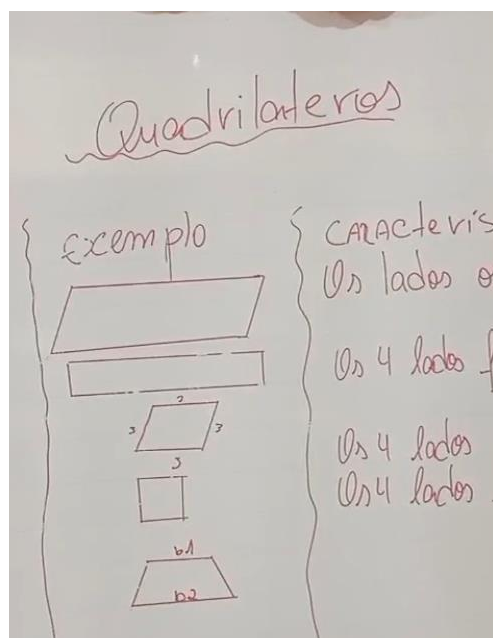 Quadrilateros
Exemplo
3
3
3
b1
b2
CARActeris
Os lados o
Os 4 lados f
Os 4 lados
Os 4 lados